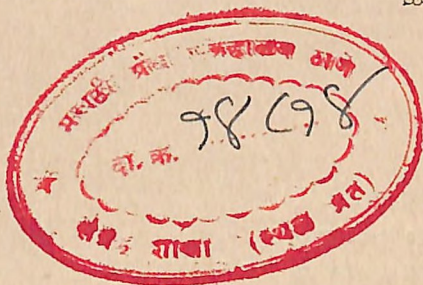 मराठी ग्रंथ संग्रहालय ठाणे
दा. क्र. १४८१४
शाखा (स्थळ प्रत)